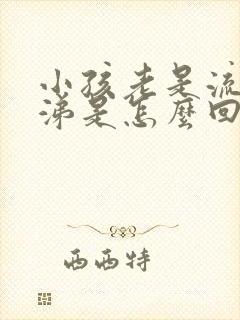 小孩老是流
涕是怎麼回
西西特